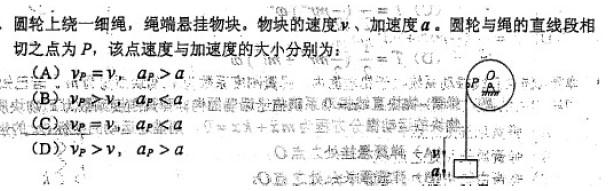 圆轮上绕一细绳，绳端悬挂物块。物块的速度v、加速度a。圆轮与绳的直线段相
切之点为P，该点速度与加速度的大小分别为：
(A) vP=v，aP>a
(B) vP>v，aP<a
(C) vP=v，aP<a
(D) vP>v，aP>a
O
P
v
a